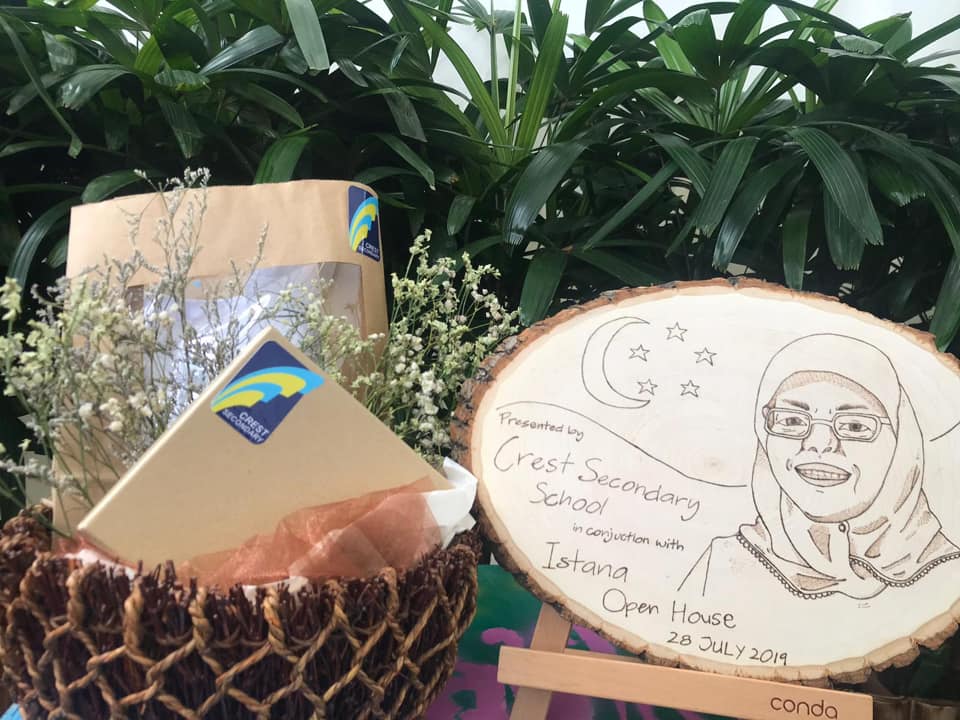 CREST
SECONDARY
CREST
SECONDARY
Presented by
Crest Secondary
School
in conjuction with
Istana
Open House
28 JULY 2019
conda